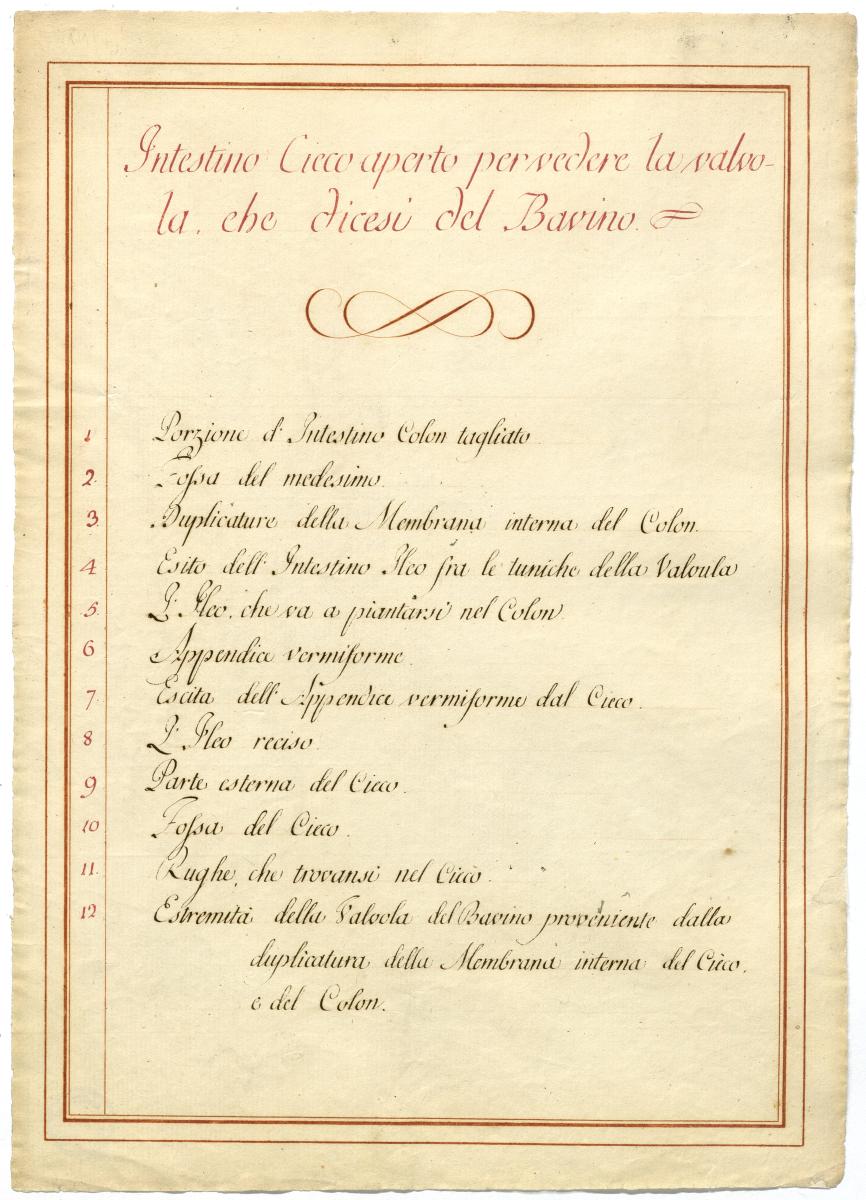 Intestino Cieco aperto per vedere la valvo-
la, che dicesi del Bavino.
1 Porzione d' Intestino Colon tagliato
2. Fossa del medesimo.
3 Duplicature della Membrana interna del Colon.
4 Esito dell' Intestino Ileo fra le tuniche della Valvula
5. L' Ileo, che va a piantarsi nel Colon.
6 Appendice vermiforme.
7 Escita dell' Appendice vermiforme dal Cieco.
8 L' Ileo reciso.
9 Parte esterna del Cieco.
10 Fossa del Cieco.
11. Rughe, che trovansi nel Cieco.
12 Estremità della Valvola del Bavino proveniente dalla
duplicatura della Membrana interna del Cieco,
e del Colon.